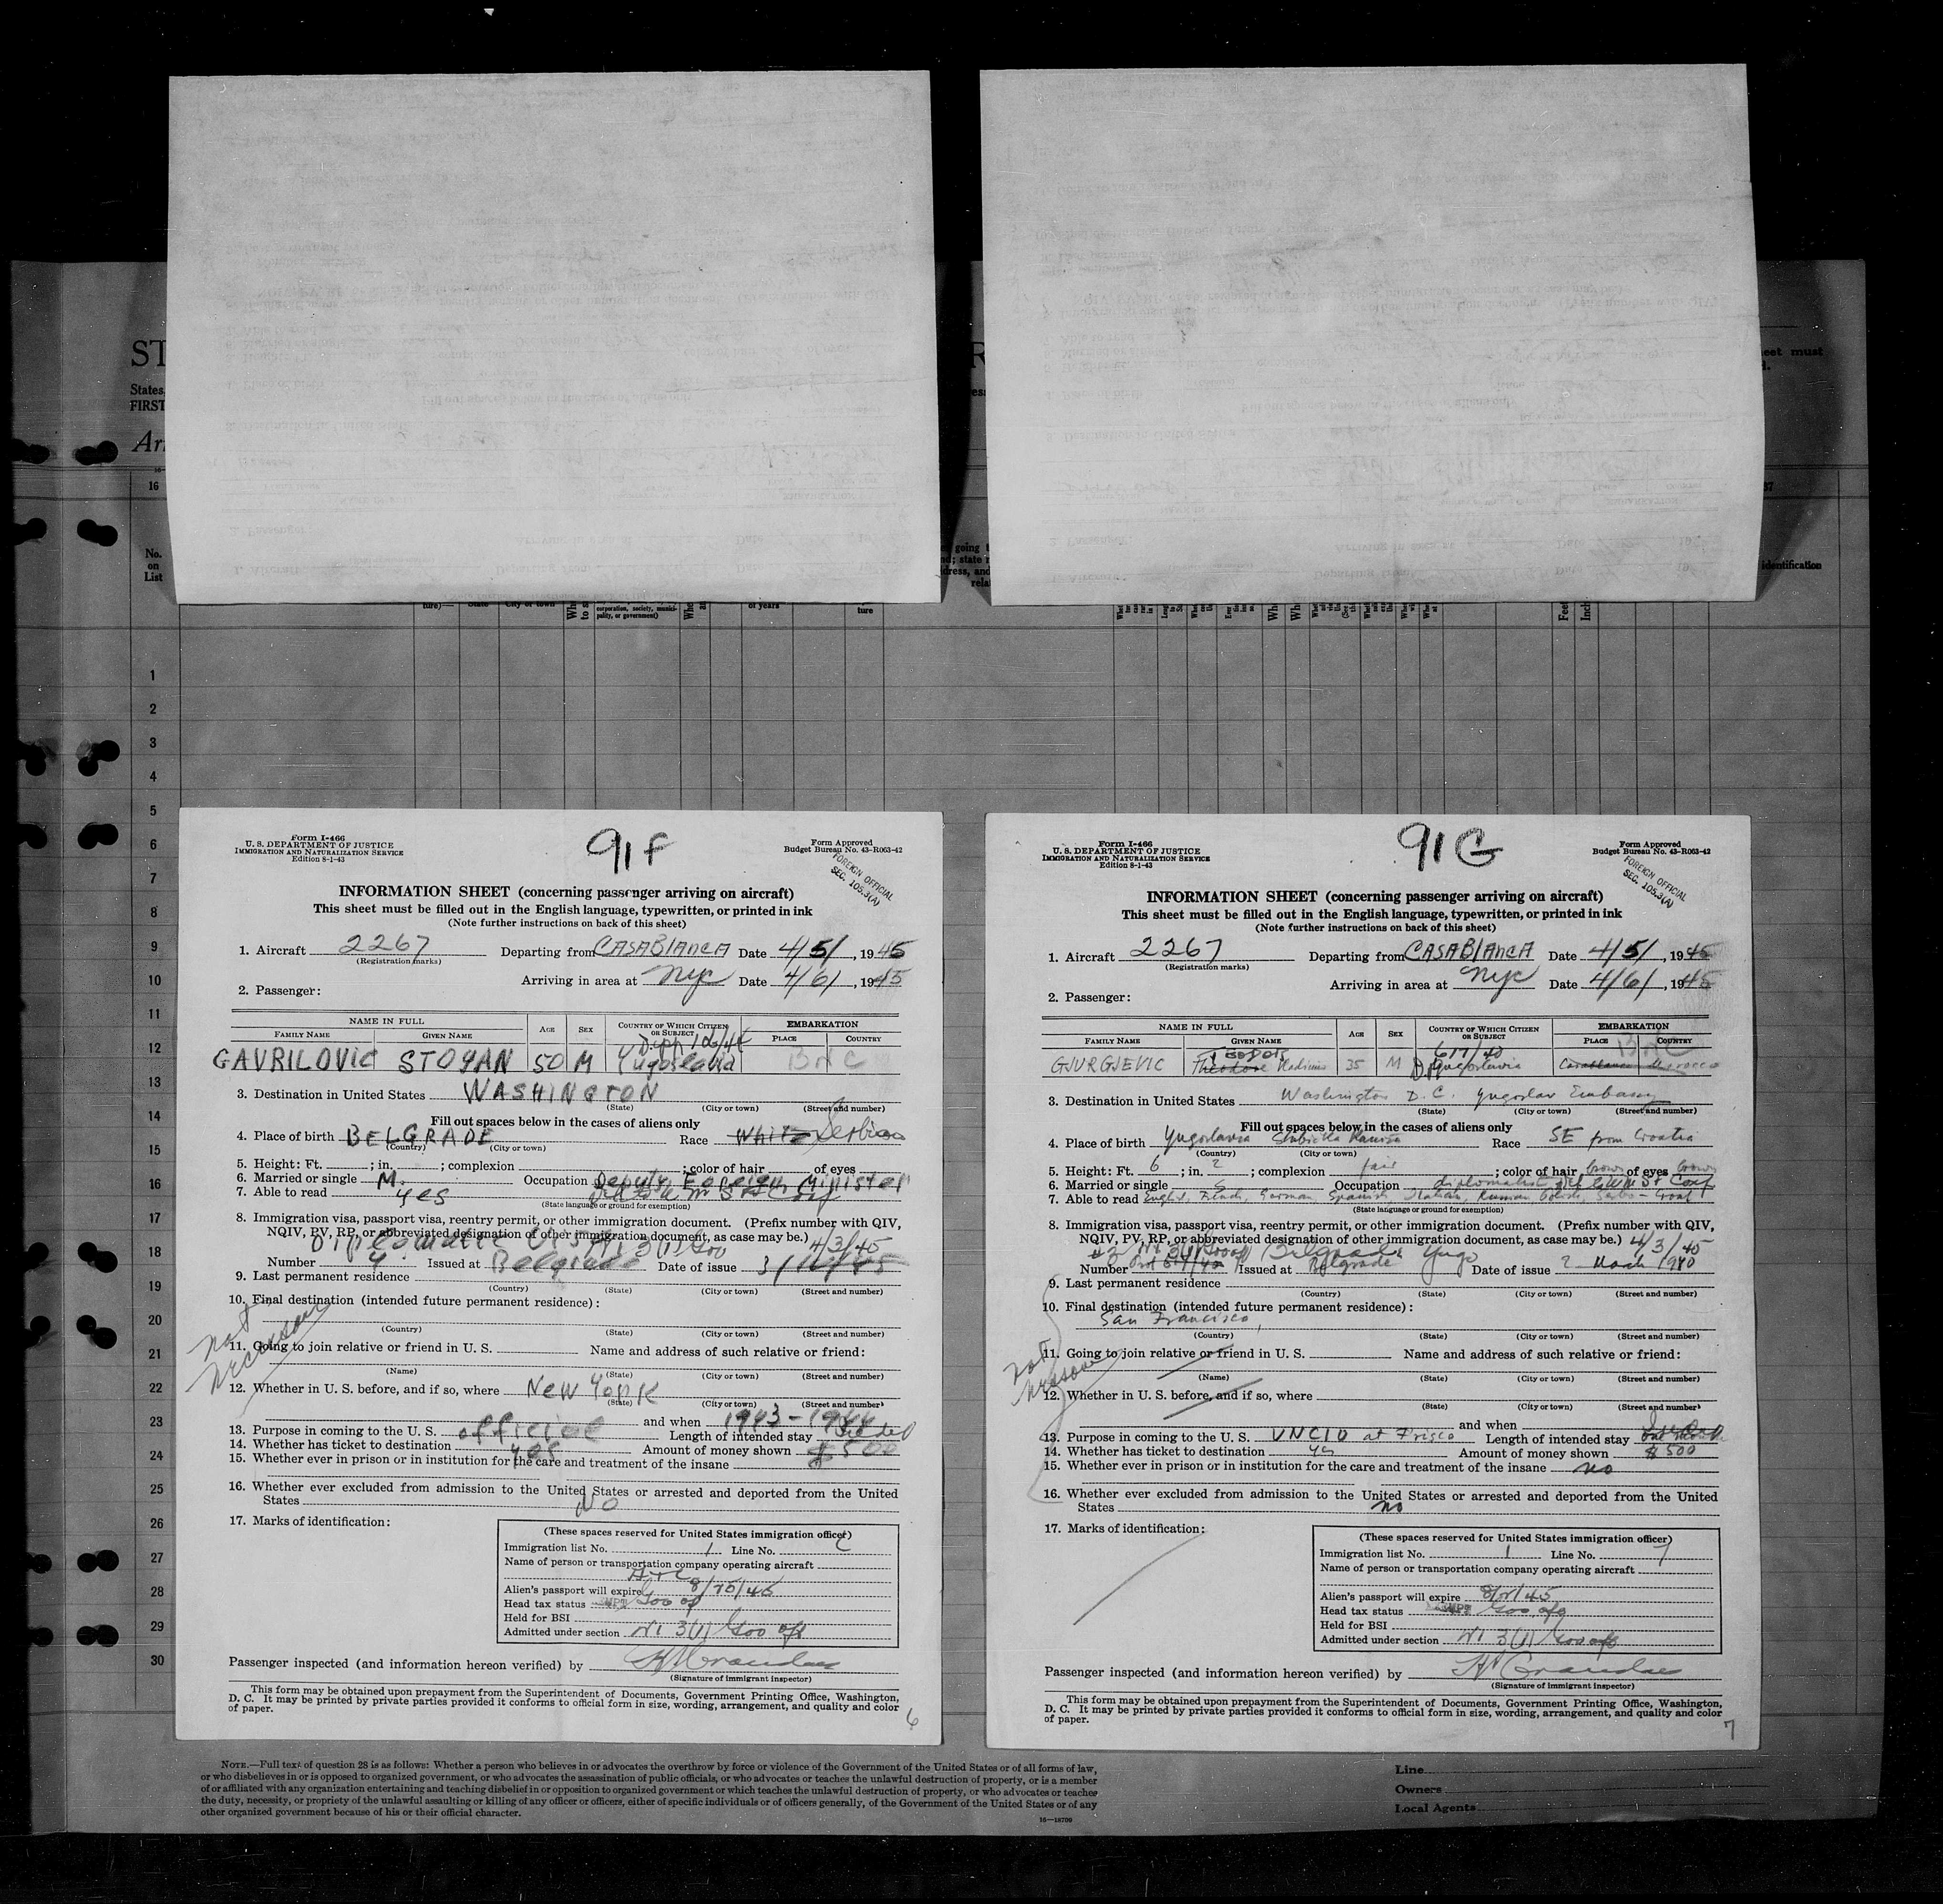 ST
States,
FIRST
Arr
16
No.
on
List
eet must
identification
ture)—
State
City or town
corporation, society, munici-
pality, or government)
of years
ture
Feet
1
2
3
4
5
6
7
8
9
10
11
12
13
14
15
16
17
18
19
20
21
22
23
24
25
26
27
28
29
30
Form I-466
U. S. DEPARTMENT OF JUSTICE
IMMIGRATION AND NATURALIZATION SERVICE
Edition 8-1-43
91F
Form Approved
Budget Bureau No. 43-R063-42
FOREIGN OFFICIAL
SEC. 105.3(A)
INFORMATION SHEET (concerning passenger arriving on aircraft)
This sheet must be filled out in the English language, typewritten, or printed in ink
(Note further instructions on back of this sheet)
1. Aircraft 2267 Departing from CASABlAncA Date 4/5/, 1945
(Registration marks)
Arriving in area at nyc Date 4/6/, 1945
2. Passenger:
NAME IN FULL AGE SEX COUNTRY OF WHICH CITIZEN OR SUBJECT EMBARKATION
FAMILY NAME GIVEN NAME PLACE COUNTRY
GAVRILOVIC STOYAN 50 M Yugoslavia
3. Destination in United States WASHINGTON
(State) (City or town) (Street and number)
Fill out spaces below in the cases of aliens only
4. Place of birth BELGRADE Race White Serbian
(Country) (City or town)
5. Height: Ft. ; in. ; complexion ; color of hair of eyes
6. Married or single M. Occupation Deputy Foreign Minister
7. Able to read yes
(State language or ground for exemption)
8. Immigration visa, passport visa, reentry permit, or other immigration document. (Prefix number with QIV,
NQIV, PV, RP, or abbreviated designation of other immigration document, as case may be.) 4/3/45
Diplomatic Visa 3(1) Goo
Number 4 Issued at Belgrade Date of issue
9. Last permanent residence
(Country) (State) (City or town) (Street and number)
10. Final destination (intended future permanent residence):
(Country) (State) (City or town) (Street and number)
not necessary
11. Going to join relative or friend in U. S. Name and address of such relative or friend:
(Name) (State) (City or town) (Street and number)
12. Whether in U. S. before, and if so, where New York
(State) (City or town) (Street and number)
and when 1943-1944
13. Purpose in coming to the U. S. official Length of intended stay
14. Whether has ticket to destination yes Amount of money shown $500
15. Whether ever in prison or in institution for the care and treatment of the insane
16. Whether ever excluded from admission to the United States or arrested and deported from the United
States No
17. Marks of identification:
(These spaces reserved for United States immigration officer)
Immigration list No. 1 Line No.
Name of person or transportation company operating aircraft
Alien's passport will expire
Head tax status Goo of
Held for BSI
Admitted under section NI 3(1) Goo ofl
Passenger inspected (and information hereon verified) by
(Signature of immigrant inspector)
This form may be obtained upon prepayment from the Superintendent of Documents, Government Printing Office, Washington,
D. C. It may be printed by private parties provided it conforms to official form in size, wording, arrangement, and quality and color
of paper.
6
Form I-466
U. S. DEPARTMENT OF JUSTICE
IMMIGRATION AND NATURALIZATION SERVICE
Edition 8-1-43
91G
Form Approved
Budget Bureau No. 43-R063-42
FOREIGN OFFICIAL
SEC. 105.3(A)
INFORMATION SHEET (concerning passenger arriving on aircraft)
This sheet must be filled out in the English language, typewritten, or printed in ink
(Note further instructions on back of this sheet)
1. Aircraft 2267 Departing from CASABlAncA Date 4/5/, 1945
(Registration marks)
Arriving in area at nyc Date 4/6/, 1945
2. Passenger:
NAME IN FULL AGE SEX COUNTRY OF WHICH CITIZEN OR SUBJECT EMBARKATION
FAMILY NAME GIVEN NAME PLACE COUNTRY
GJURGJEVIC Theodore Vladimir 35 M Yugoslavia Casablanca Morocco
3. Destination in United States Washington D.C. Yugoslav Embassy
(State) (City or town) (Street and number)
Fill out spaces below in the cases of aliens only
4. Place of birth Yugoslavia Race SE from Croatia
(Country) (City or town)
5. Height: Ft. 6; in. 2; complexion fair; color of hair brown of eyes brown
6. Married or single S Occupation diplomatist
7. Able to read English, French, German, Spanish, Italian, Russian, Polish, Serbo-Croat
(State language or ground for exemption)
8. Immigration visa, passport visa, reentry permit, or other immigration document. (Prefix number with QIV,
NQIV, PV, RP, or abbreviated designation of other immigration document, as case may be.) 4/3/45
Belgrade Yugo
Number Issued at Belgrade Date of issue 2 March 1940
9. Last permanent residence
(Country) (State) (City or town) (Street and number)
10. Final destination (intended future permanent residence):
San Francisco,
(Country) (State) (City or town) (Street and number)
11. Going to join relative or friend in U. S. Name and address of such relative or friend:
(Name) (State) (City or town) (Street and number)
12. Whether in U. S. before, and if so, where
(State) (City or town) (Street and number)
and when
13. Purpose in coming to the U. S. UNCIO at Frisco Length of intended stay one month
14. Whether has ticket to destination yes Amount of money shown $500
15. Whether ever in prison or in institution for the care and treatment of the insane no
16. Whether ever excluded from admission to the United States or arrested and deported from the United
States no
17. Marks of identification:
(These spaces reserved for United States immigration officer)
Immigration list No. 1 Line No. 7
Name of person or transportation company operating aircraft
Alien's passport will expire
Head tax status Goo ofl
Held for BSI
Admitted under section NI 3(1) Goo ofl
Passenger inspected (and information hereon verified) by
(Signature of immigrant inspector)
This form may be obtained upon prepayment from the Superintendent of Documents, Government Printing Office, Washington,
D. C. It may be printed by private parties provided it conforms to official form in size, wording, arrangement, and quality and color
of paper.
7
NOTE.—Full text of question 28 is as follows: Whether a person who believes in or advocates the overthrow by force or violence of the Government of the United States or of all forms of law,
or who disbelieves in or is opposed to organized government, or who advocates the assassination of public officials, or who advocates or teaches the unlawful destruction of property, or is a member
of or affiliated with any organization entertaining and teaching disbelief in or opposition to organized government or which teaches the unlawful destruction of property, or who advocates or teaches
the duty, necessity, or propriety of the unlawful assaulting or killing of any officer or officers, either of specific individuals or of officers generally, of the Government of the United States or of any
other organized government because of his or their official character.
16—18700
Line
Owners
Local Agents